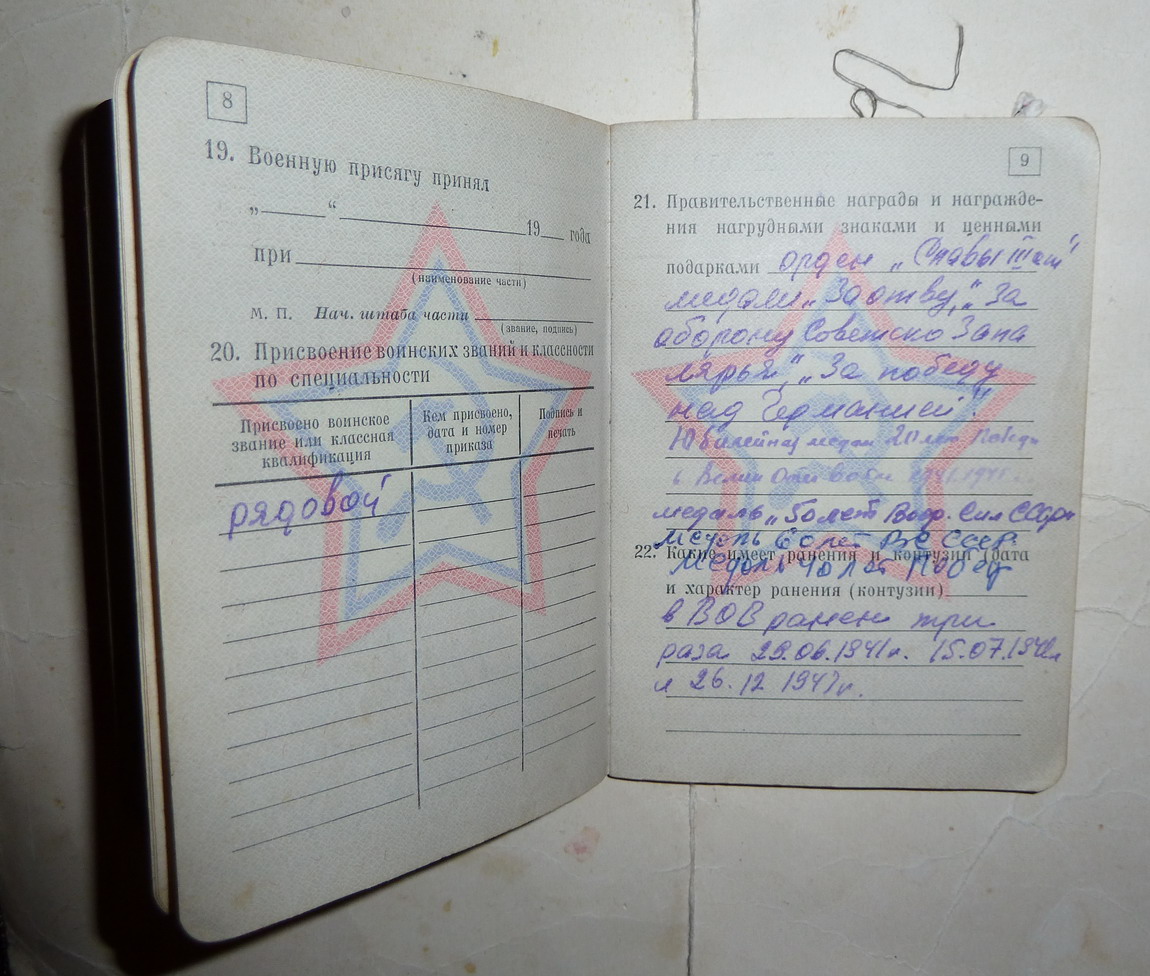 8
19. Военную присягу принял
„ “ 19 года
при
(наименование части)
М. П. Нач. штаба части
(звание, подпись)
20. Присвоение воинских званий и классности
по специальности
Присвоено воинское
звание или классная
квалификация
Кем присвоено,
дата и номер
приказа
Подпись и
печать
рядовой
9
21. Правительственные награды и награжде-
ния нагрудными знаками и ценными
подарками орден „Славы III
медали „За отвагу,“ За
оборону Советско Запо
лярья,“ „За победу
над Германией“.
Юбилейная медаль 20 лет Победы
в Велик
медаль „50 лет Воор. Сил СССР“
медаль 60 лет ВС СССР
22. Какие имеет ранения и контузии (дата
Медаль 40 лет Побед
и характер ранения (контузии)
в ВОВ ранен три
раза 29.06.1941г. 15.07.
и 26.12